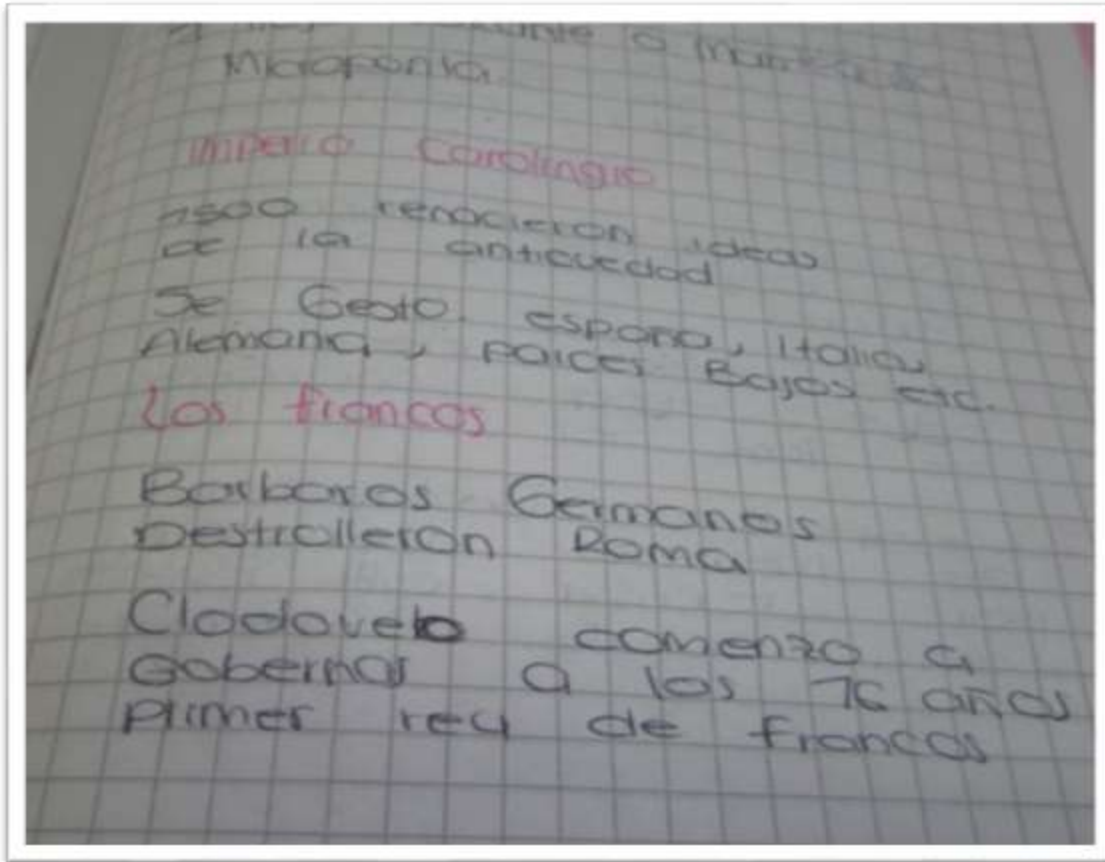 o
Microfonia
Imperio Carolingio
renacieron ideas
de la antiguedad
Se Gesto, españa, Italia,
Alemania, Paices Bajos etc.
Los francos
Barbaros Germanos
Destrolleron Roma
Clodoveo comenzo a
Gobernar a los 76 años
Primer rey de francos